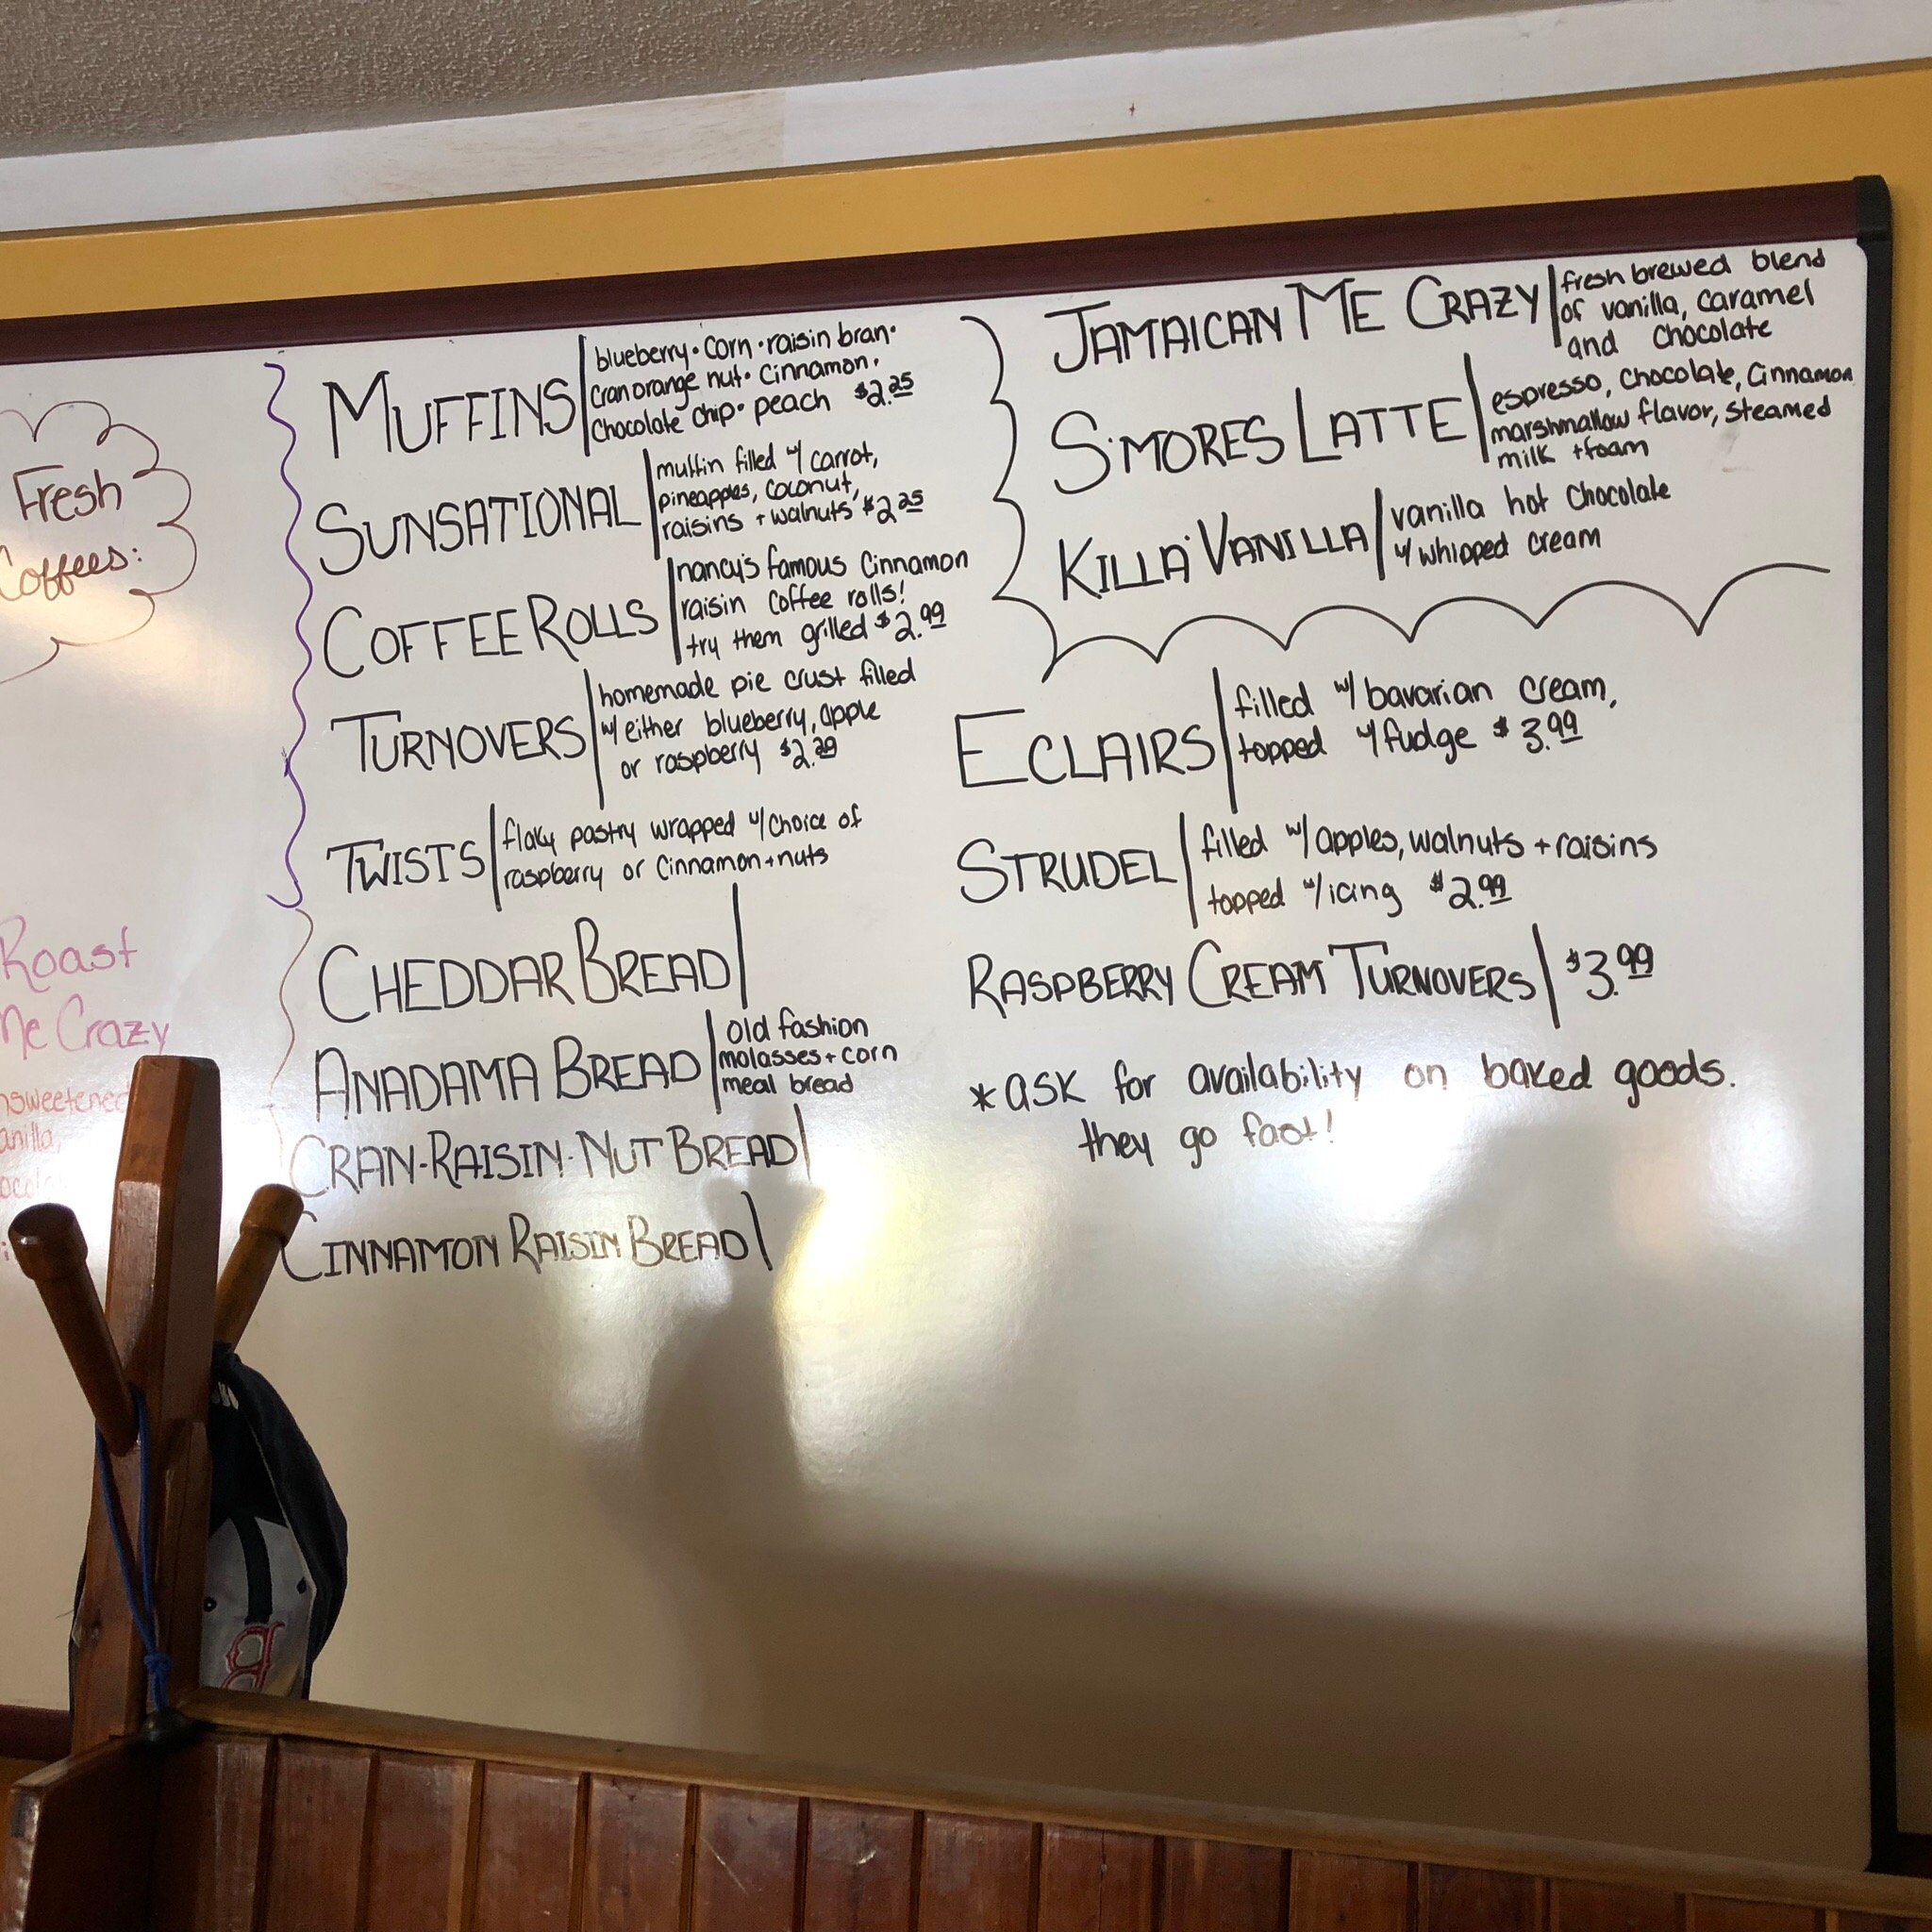 Fresh
Coffees:
Roast
Me Crazy
MUFFINS
blueberry • corn • raisin bran •
cran orange nut • cinnamon •
chocolate chip • peach $2.25
SUNSATIONAL
muffin filled w/ carrot,
pineapples, coconut,
raisins + walnuts $2.25
COFFEE ROLLS
nancy's famous cinnamon
raisin coffee rolls!
try them grilled $2.99
TURNOVERS
homemade pie crust filled
w/ either blueberry, apple
or raspberry $2.29
TWISTS
flaky pastry wrapped w/ choice of
raspberry or cinnamon + nuts
CHEDDAR BREAD
ANADAMA BREAD
old fashion
molasses + corn
meal bread
CRAN-RAISIN-NUT BREAD
CINNAMON RAISIN BREAD
JAMAICAN ME CRAZY
fresh brewed blend
of vanilla, caramel
and chocolate
S'MORES LATTE
espresso, chocolate, cinnamon
marshmallow flavor, steamed
milk + foam
KILLA' VANILLA
vanilla hot chocolate
w/ whipped cream
ECLAIRS
filled w/ bavarian cream,
topped w/ fudge $3.99
STRUDEL
filled w/ apples, walnuts + raisins
topped w/ icing $2.99
RASPBERRY CREAM TURNOVERS $3.99
* ask for availability on baked goods.
they go fast!
B